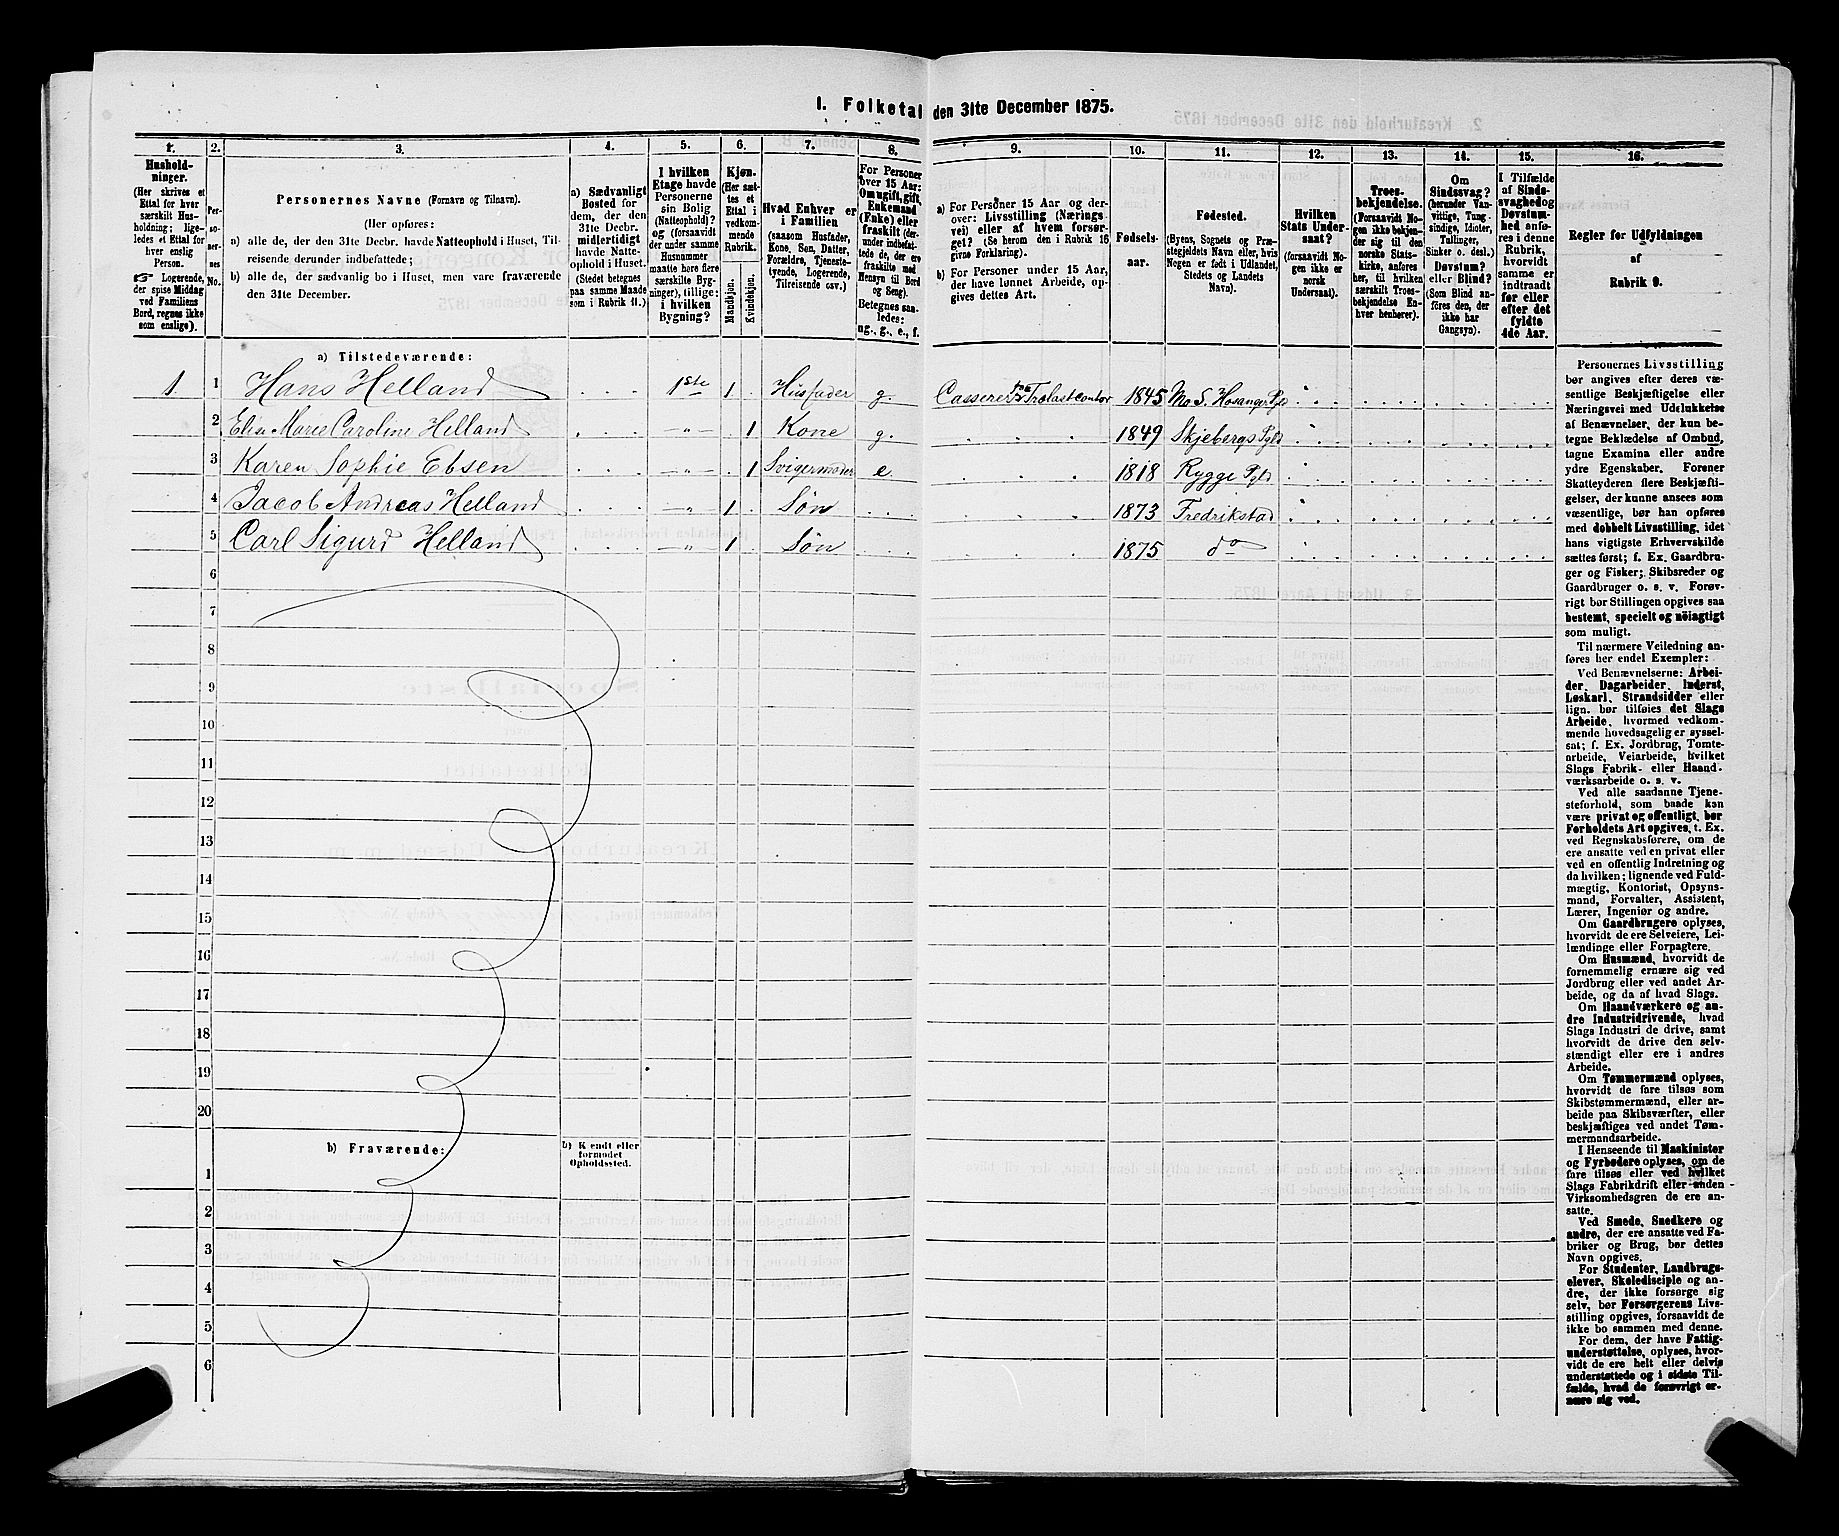 1. Folketal den 31te December 1875.
1.
Hushold-
ninger.
(Her skrives et
Ettal for hver
særskilt Hus-
holdning; lige-
ledes et Ettal for
hver enslig
Person.
☞ Logerende,
der spise Middag
ved Familiens
Bord, regnes ikke
som enslige).
2.
Per-
so-
ner-
nes
No.
3.
Personernes Navne (Fornavn og Tilnavn).
(Her opføres:
a) alle de, der den 31te Decbr. havde Natteophold i Huset, Til-
reisende derunder indbefattede;
b) alle de, der sædvanlig bo i Huset, men vare fraværende
den 31te December.
4.
a) Sædvanligt
Bosted for
dem, der den
31te Decbr.
midlertidigt
havde Natte-
ophold i Huset.
(Stedet betegnes
paa samme Maade
som i Rubrik 11.)
5.
I hvilken
Etage havde
Personerne
sin Bolig
(Natteophold)?
og (forsaavidt
der under samme
Husnummer
maatte høre flere
særskilte Byg-
ninger), tillige:
i hvilken
Bygning?
6.
Kjøn.
(Her sæt-
tes et
Ettal i
vedkom-
mende
Rubrik.
Mandkjøn.
Kvindekjøn.
7.
Hvad Enhver er
i Familien
(saasom Husfader,
Kone, Søn, Datter,
Forældre, Tjeneste-
tyende, Logerende,
Tilreisende osv.)
8.
For Personer
over 15 Aar:
Om ugift, gift,
Enkemand
(Enke) eller
fraskilt (der-
under indbefat-
tede de, der ere
fraskilte med
Hensyn til Bord
og Seng).
Betegnes saa-
ledes:
ug., g., e., f.
9.
a) For Personer 15 Aar og der-
over: Livsstilling (Nærings-
vei) eller af hvem forsør-
get? (Se herom den i Rubrik 16
givne Forklaring).
b) For Personer under 15 Aar,
der have lønnet Arbeide, op-
gives dettes Art.
10.
Fødsels-
aar.
11.
Fødested.
(Byens, Sognets og Præ-
stegjeldets Navn eller, hvis
Nogen er født i Udlandet,
Stedets og Landets
Navn).
12.
Hvilken
Stats Under-
saat?
(forsaavidt No-
gen ikke er
norsk
Undersaat).
13.
Troes-
bekjendelse.
(Forsaavidt No-
gen ikke bekjen-
der sig til den
norske Stats-
kirke, anføres
her, til hvilken
særskilt Troes-
bekjendelse En-
hver henhører).
14.
Om
Sindssvag?
(herunder Van-
vittige, Tung-
sindige, Idioter,
Tullinger,
Sinker o. desl.)
Døvstum?
eller Blind?
(Som Blind an-
føres den, der
ikke har
Gangsyn).
15.
I Tilfælde
af Sinds-
svaghed og
Døvstum-
hed anfø-
res i denne
Rubrik,
hvorvidt
samme er
indtraadt
før eller
efter det
fyldte
4de Aar.
16.
Regler for Udfyldningen
af
Rubrik 9.
a) Tilstedeværende:
1. 1 Hans Helland 1ste 1 Husfader g. Casserer Trælastcontor 1845 Mo S. Hosanger Pgld
2 Elise Marie Caroline Helland — " — 1 Kone g. 1849 Skjebergs Pgld
3 Karen Sophie Ebsen — " — 1 Svigermoder e. 1818 Rygge Pgld
4 Jacob Andreas Helland — " — 1 Søn 1873 Fredrikstad
5 Carl Sigurd Helland — " — 1 Søn 1875 do
6
7
8
9
10
11
12
13
14
15
16
17
18
19
20
b) Fraværende:
b) Kjendt eller
formodet
Opholdssted.
1
2
3
4
5
6
Personernes Livsstilling
bør angives efter deres væ-
sentlige Beskjæftigelse eller
Næringsvei med Udelukkelse
af Benævnelser, der kun be-
tegne Beklædelse af Ombud,
tagne Examina eller andre
ydre Egenskaber. Forener
Skatteyderen flere Beskjæfti-
gelser, der kunne ansees som
væsentlige, bør han opføres
med dobbelt Livsstilling, idet
hans vigtigste Erhvervskilde
sættes først; f. Ex. Gaardbru-
ger og Fisker; Skibsreder og
Gaardbruger o. s. v. Forøv-
rigt bør Stillingen opgives saa
bestemt, specielt og nøiagtigt
som muligt.
Til nærmere Veiledning an-
føres her endel Exempler:
Ved Benævnelserne: Arbei-
der, Dagarbeider, Inderst,
Løskarl, Strandsidder eller
lign. bør tilføies det Slags
Arbeide, hvormed vedkom-
mende hovedsagelig er syssel-
sat; f. Ex. Jordbrug, Tomte-
arbeide, Veiarbeide, hvilket
Slags Fabrik- eller Haand-
værksarbeide o. s. v.
Ved alle saadanne Tjene-
steforhold, som baade kan
være privat og offentligt, bør
Forholdets Art opgives, t. Ex.
ved Regnskabsførere, om de
ere ansatte ved en privat eller
ved en offentlig Indretning og
da hvilken; lignende ved Fuld-
mægtig, Kontorist, Opsyns-
mand, Forvalter, Assistent,
Lærer, Ingeniør og andre.
Om Gaardbrugere oplyses,
hvorvidt de ere Selveiere, Lei-
lændinge eller Forpagtere.
Om Husmænd, hvorvidt de
fornemmelig ernære sig ved
Jordbrug eller ved andet Ar-
beide, og da af hvad Slags.
Om Haandværkere og an-
dre Industridrivende, hvad
Slags Industri de drive, samt
hvorvidt de drive den selv-
stændigt eller ere i andres
Arbeide.
Om Tømmermænd oplyses,
hvorvidt de fare tilsøs som
Skibstømmermænd, eller ar-
beide paa Skibsværfter, eller
beskjæftiges ved andet Tøm-
mermandsarbeide.
I Henseende til Maskinister
og Fyrbødere oplyses, om de
fare tilsøs eller ved hvilket
Slags Fabrikdrift eller anden
Virksomhedsgren de ere an-
satte.
Ved Smede, Snedkere og
andre, der ere ansatte ved Fa-
briker og Brug, bør dettes
Navn opgives.
For Studenter, Landbrugs-
elever, Skoledisciple og an-
dre, der ikke forsørge sig
selv, bør Forsørgerens Livs-
stilling opgives, forsaavidt de
ikke bo sammen med denne.
For dem, der have Fattig-
understøttelse, oplyses, hvor-
vidt de ere helt eller delvis
understøttede og i sidste Til-
fælde, hvad de forøvrigt er-
nære sig ved.